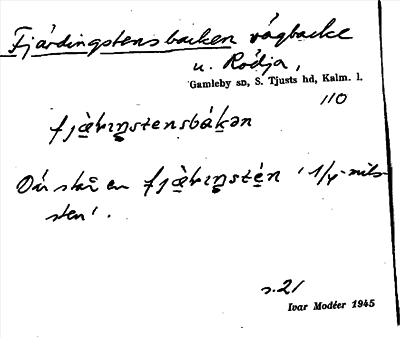 Fjärdingstensbacken vägbacke
u. Rödja,
Gamleby sn, S. Tjusts hd, Kalm. l.
110
fjæ̀rɩṉstensbák̲ən
Där står en fjæ̀rɩṉstén '1/4-mils-
sten'.
s. 21
Ivar Modéer 1945